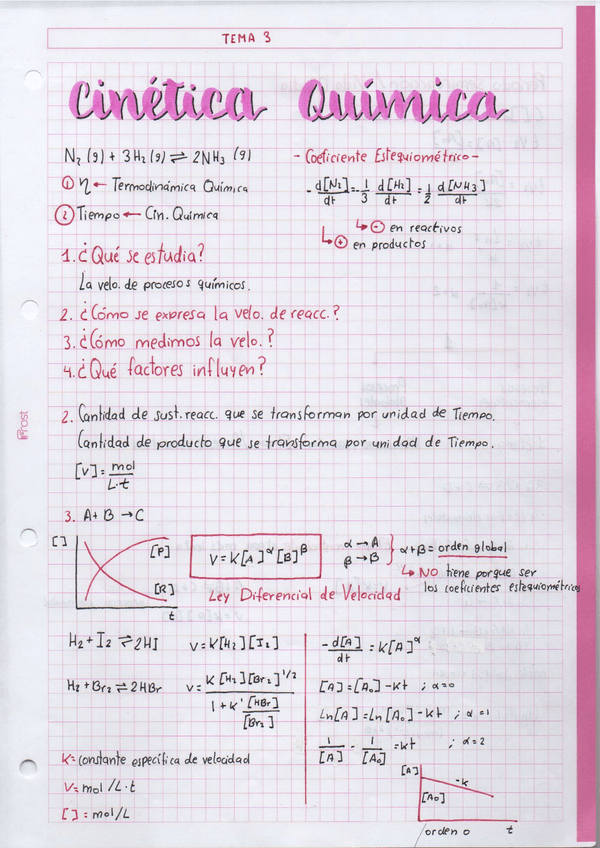 TEMA 3
Cinética Química
N₂ (g) + 3H₂ (g) ⇌ 2NH₃ (g)
① η ← Termodinámica Química
② Tiempo ← Cin. Química
- Coeficiente Estequiométrico -
- d[N₂]/dt = - 1/3 d[H₂]/dt = 1/2 d[NH₃]/dt
↳ ⊖ en reactivos
↳ ⊕ en productos
1. ¿Qué se estudia?
La velo. de procesos químicos.
2. ¿Cómo se expresa la velo. de reacc.?
3. ¿Cómo medimos la velo.?
4. ¿Qué factores influyen?
2. Cantidad de sust. reacc. que se transforman por unidad de Tiempo.
Cantidad de producto que se transforma por unidad de Tiempo.
[V] = mol/L·t
3. A + B → C
[ ]
[P]
[R]
t
V = K[A]^α [B]^β
Ley Diferencial de Velocidad
α → A
β → B
α + β = orden global
↳ NO tiene porque ser
los coeficientes estequiométricos
H₂ + I₂ ⇌ 2HI V = K[H₂][I₂]
H₂ + Br₂ ⇌ 2HBr V = K[H₂][Br₂]^1/2 / 1 + K' [HBr]/[Br₂]
K = constante específica de velocidad
V = mol/L·t
[ ] = mol/L
- d[A]/dt = K[A]^α
[A] = [A₀] - Kt ; α=0
Ln[A] = Ln[A₀] - Kt ; α=1
1/[A] - 1/[A₀] = Kt ; α=2
[A]
[A₀]
-K
orden 0 t
Prost